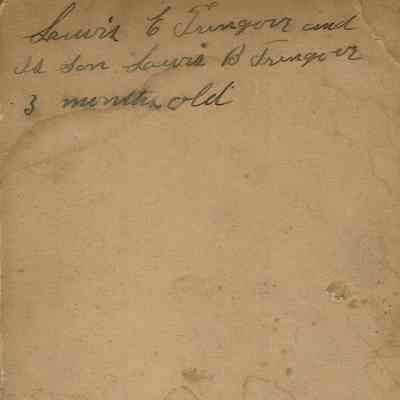 Lewis E Tringover and
is son Lewis B Tringover
3 months old